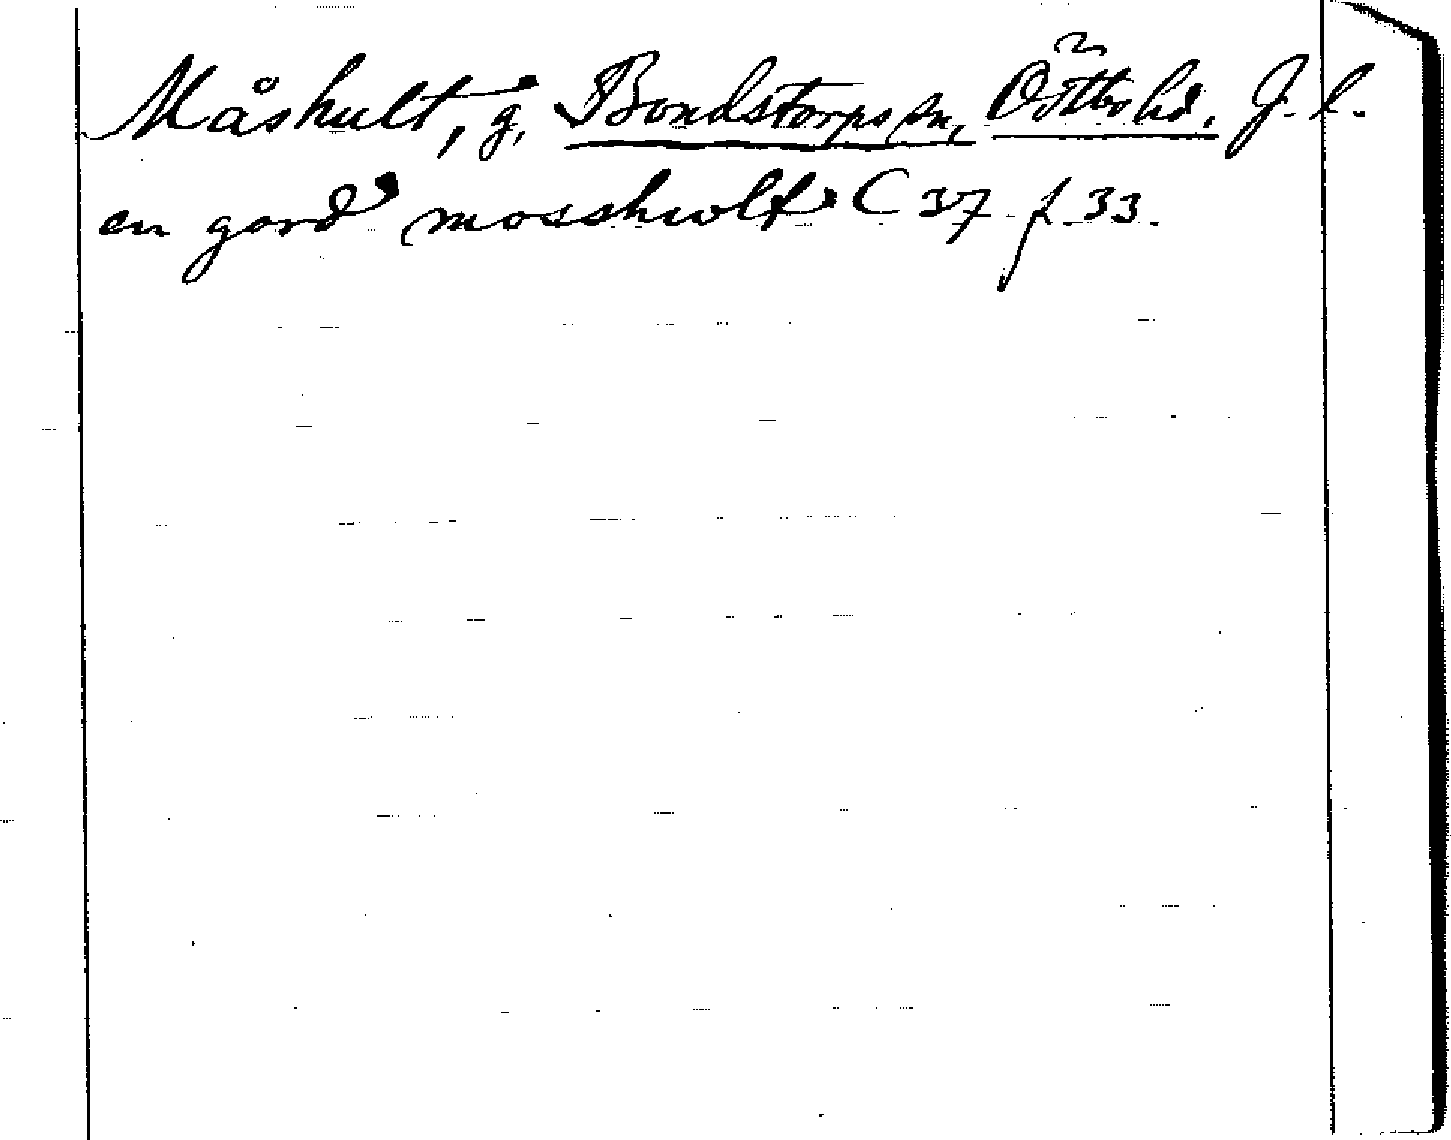 Måskult, g, Bondstorps sn, Östbo hd. J. l.
en gord mosshwlt C 37 f 33.